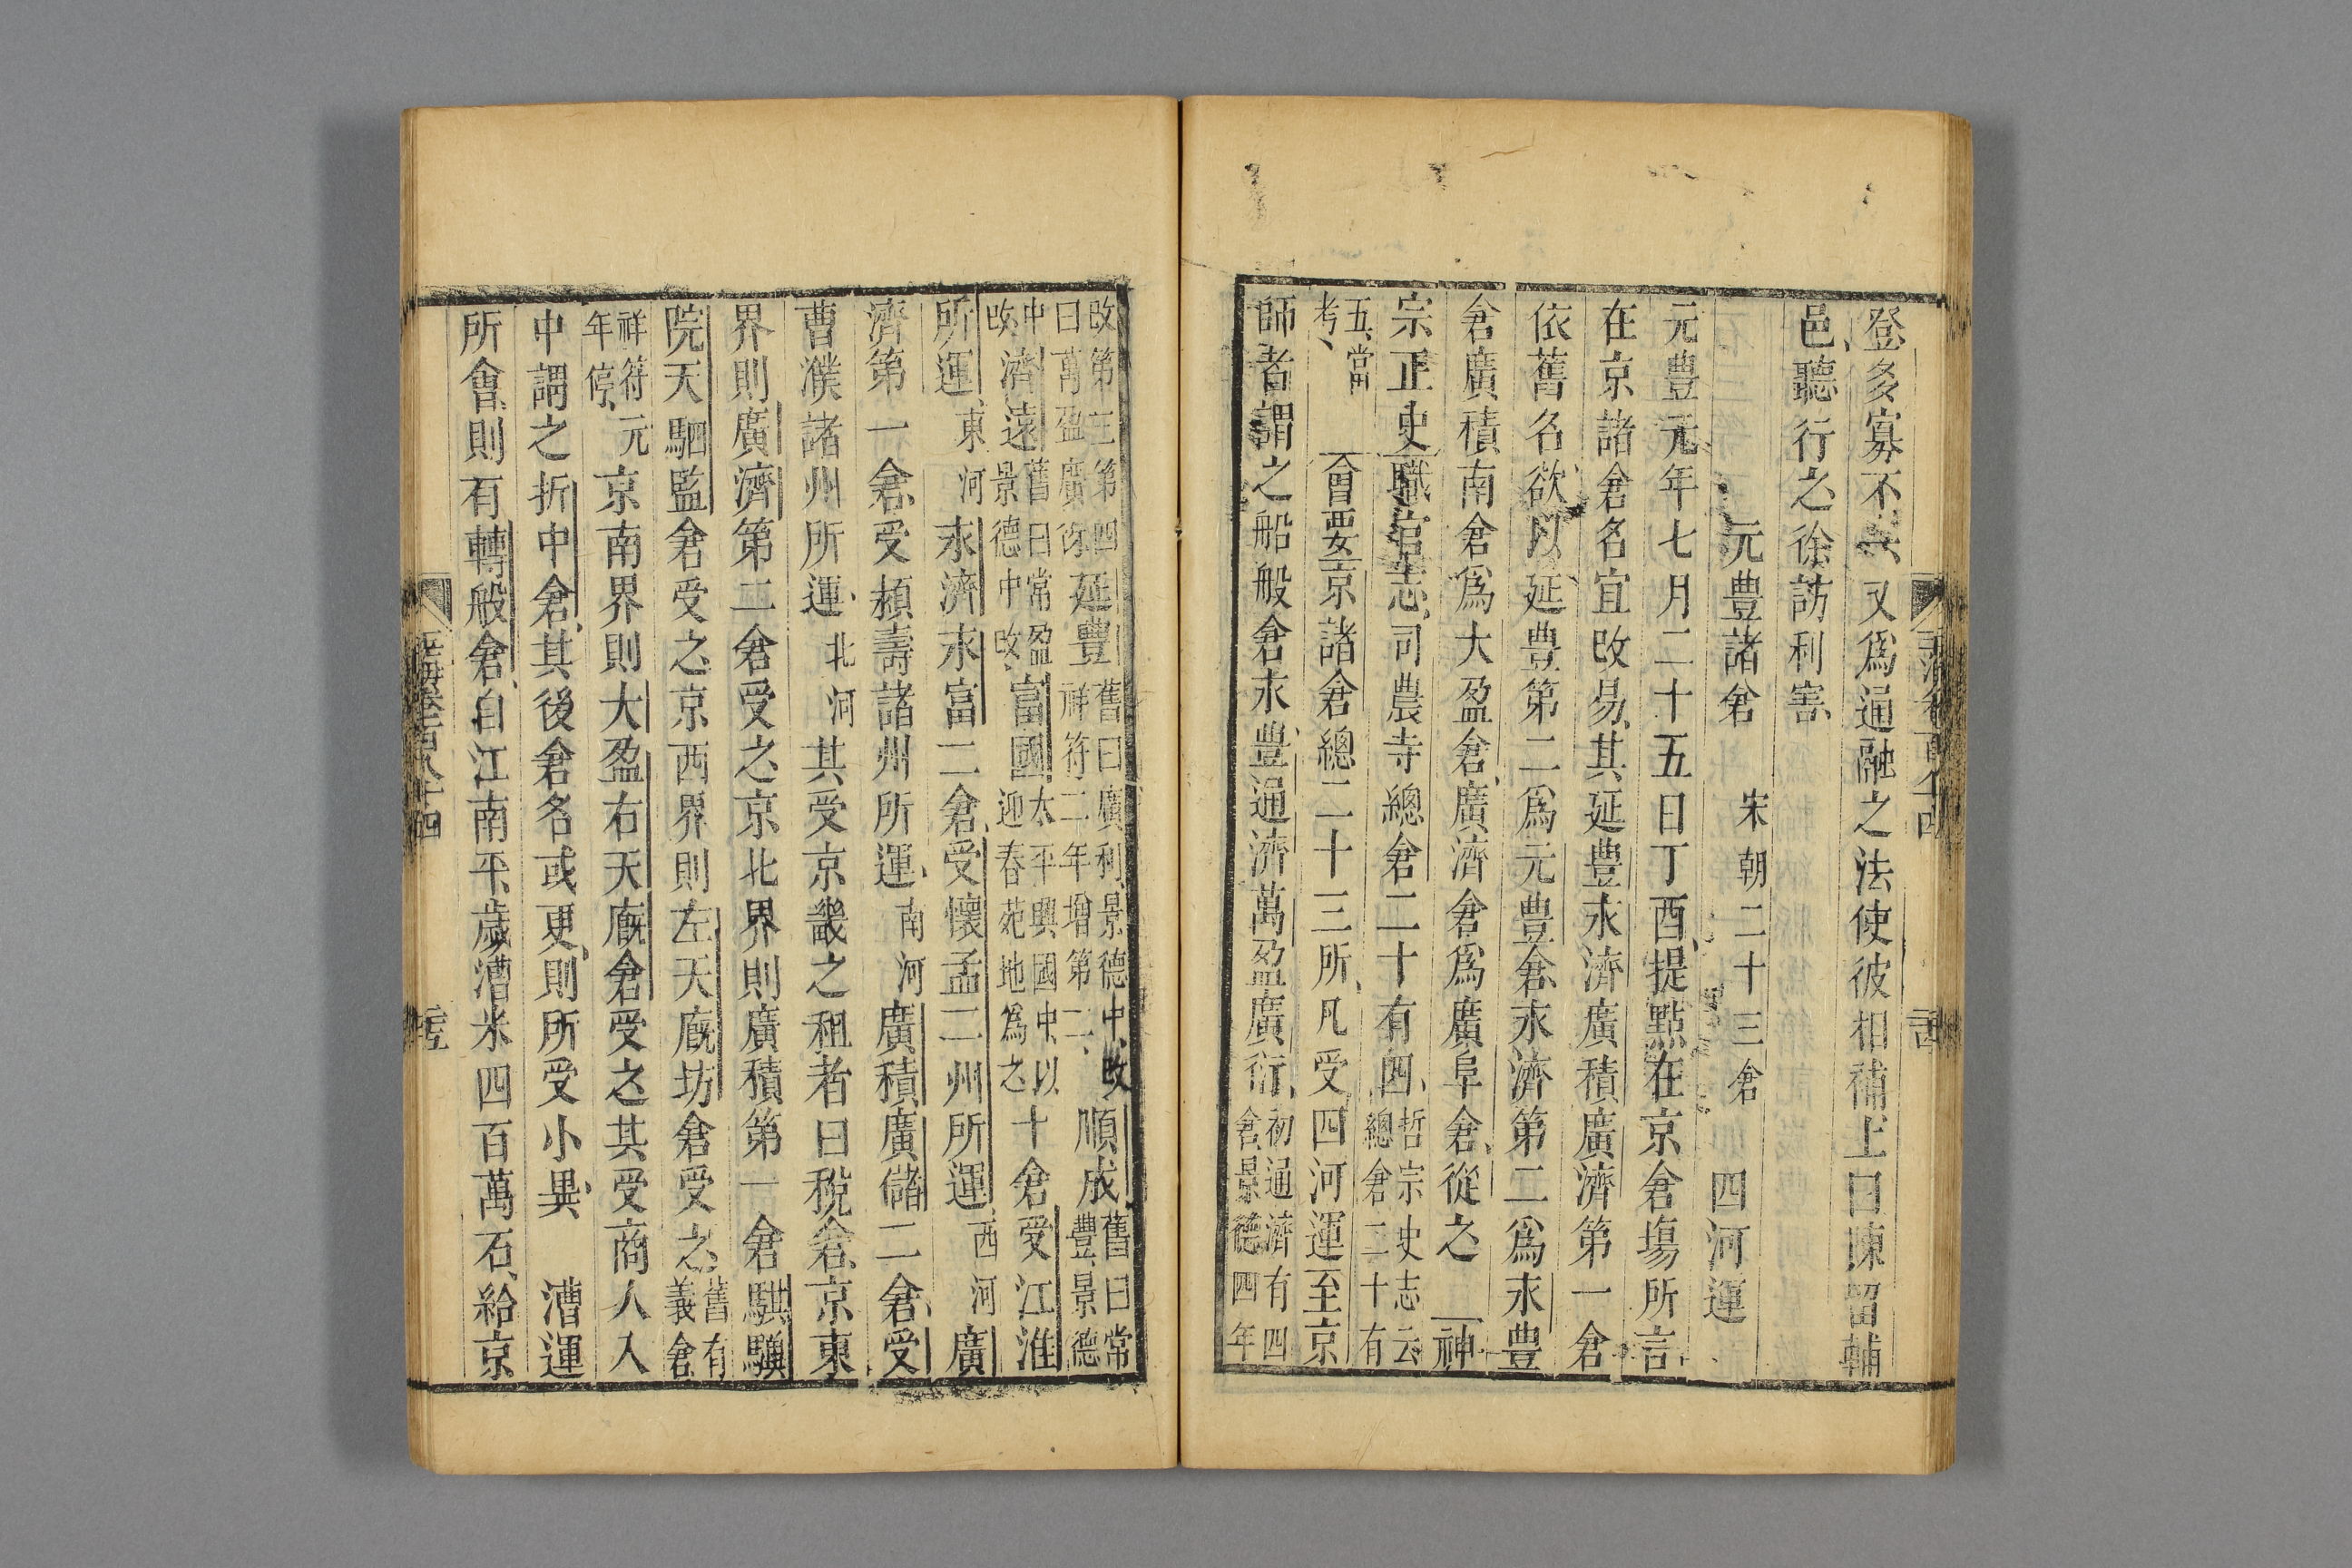 登多寡不又爲通融之法使彼相補上曰陳留輔
邑聽行之徐訪利害
元豊諸倉 宋朝二十三倉 四河運
元豊元年七月二十五日丁酉提點在京倉場所言
在京諸倉名宜改易其延豊永濟廣積廣濟第一倉
依舊名欲以延豊第二爲元豊倉永濟第二爲永豊
倉廣積南倉爲大盈倉廣濟倉爲廣阜倉從之 神
宗正史職官志司農寺總倉二十有四哲宗史志云總倉二十有
五當考 會要京諸倉總二十三所凡受四河運至京
師者謂之船般倉永豊通濟萬盈廣衍初通濟有四倉景德四年
改第三第四曰萬盈廣衍延豐舊曰廣利景德中改祥符二年增第二順成舊曰常豐景德
中改濟遠舊曰常盈景德中改富國太平興國中以迎春苑地爲之十倉受江淮
所運東河永濟永富二倉受懷孟二州所運西河廣
濟第一倉受潁壽諸州所運南河廣積廣儲二倉受
曹濮諸州所運北河其受京畿之租者曰稅倉京東
界則廣濟第二倉受之京北界則廣積第一倉騏驥
院天駟監倉受之京西界則左天廐坊倉受之舊有義倉
祥符元年停京南界則大盈右天廐倉受之其受商人入
中謂之折中倉其後倉名或更則所受小異 漕運
所會則有轉般倉自江南平歲漕米四百萬石給京
玉海卷一百八十四